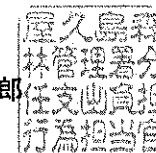 屋久島森
林管理署分
任支出負担
行為担当官
郎